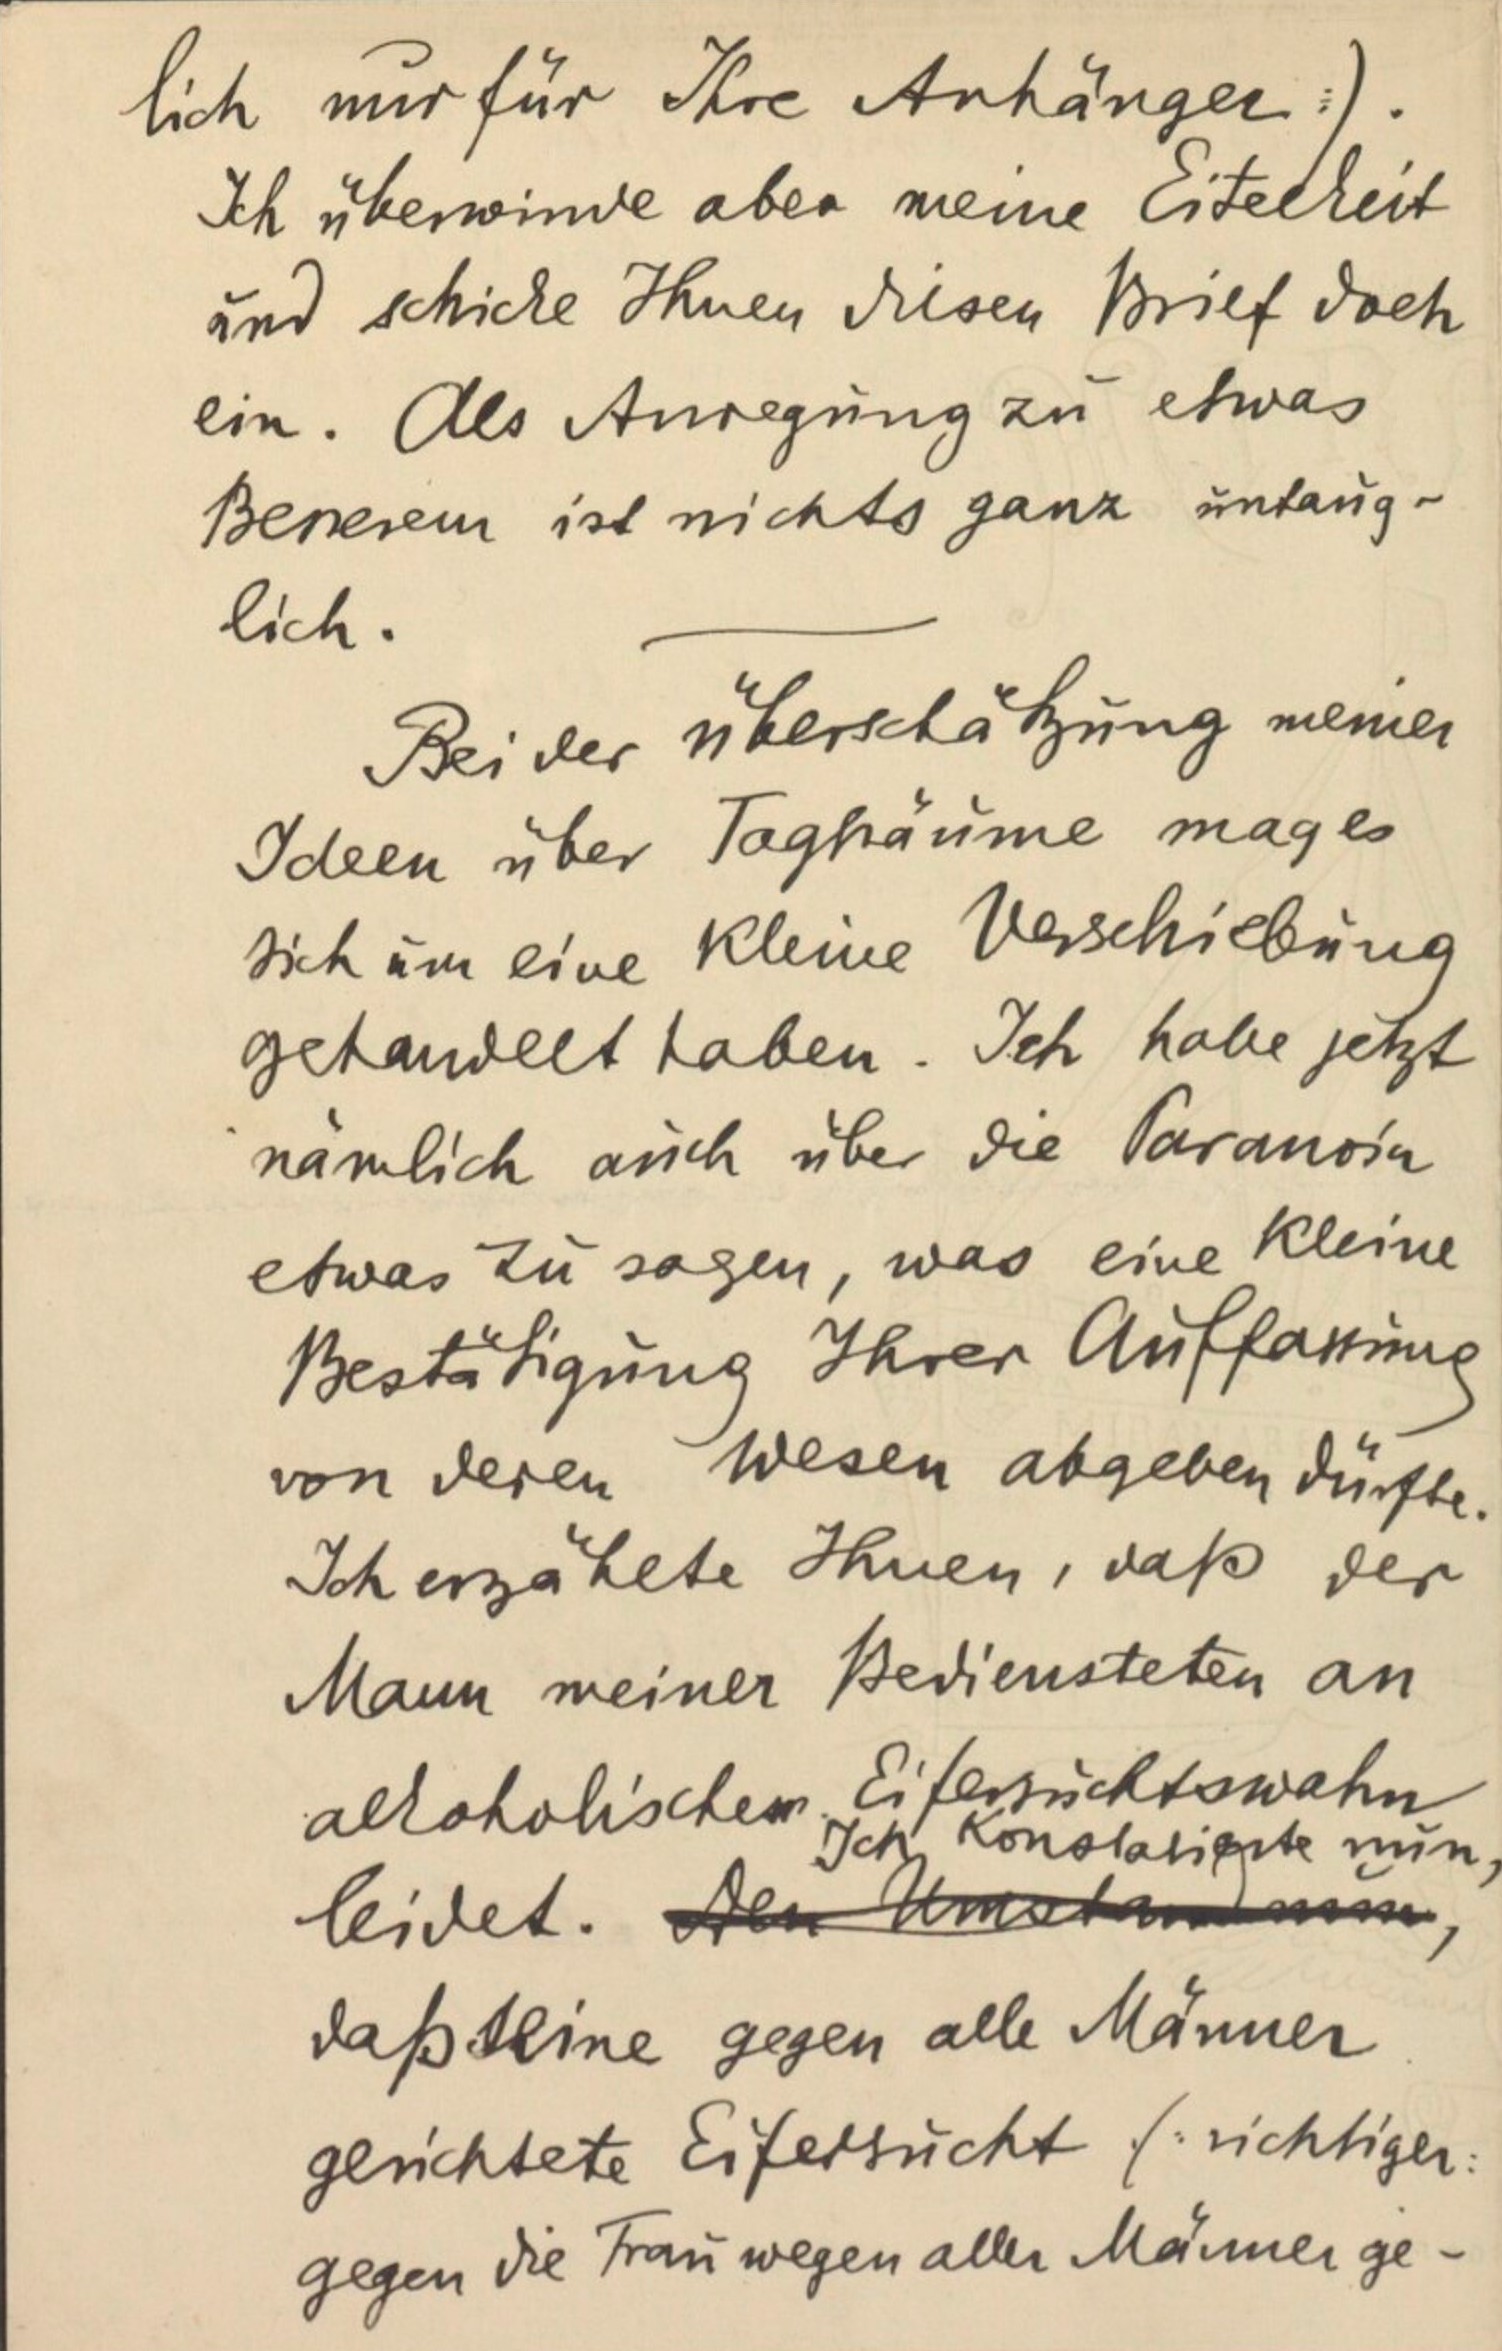 lich nur für Ihre Anhänger :).
Ich überwinde aber meine Eitelkeit
und schicke Ihnen diesen Brief doch
ein. Als Anregung zu etwas
Besserem ist nichts ganz untaug-
lich.
Bei der Überschätzung meiner
Ideen über Tagträume mag es
sich um eine kleine Verschiebung
gehandelt haben. Ich habe jetzt
nämlich auch über die Paranoia
etwas zu sagen, was eine kleine
Bestätigung Ihrer Auffassung
von deren Wesen abgeben dürfte.
Ich erzählte Ihnen, daß der
Mann meiner Bediensteten an
alkoholischem Eifersuchtswahn
Ich konstatierte nun,
leidet. Den Umstand nun,
daß seine gegen alle Männer
gerichtete Eifersucht (: richtiger:
gegen die Frau wegen aller Männer ge-